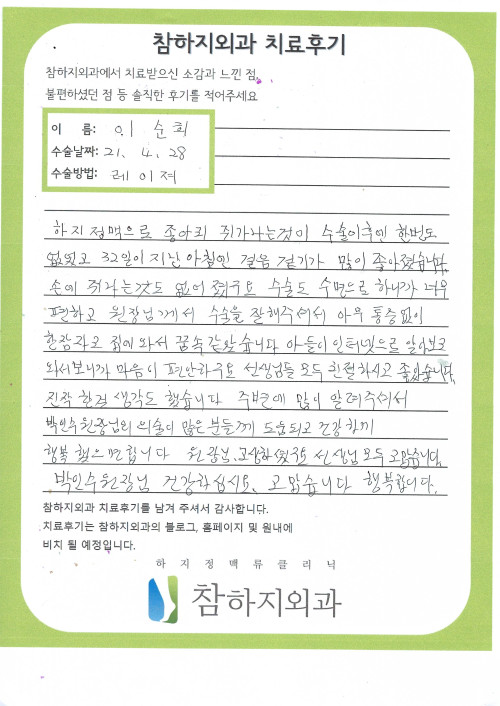 참하지외과 치료후기
참하지외과에서 치료받으신 소감과 느낀 점,
불편하셨던 점 등 솔직한 후기를 적어주세요
이 름: 이 순희
수술날짜: 21. 4. 28
수술방법: 레이져
하지정맥으로 종아리 쥐가나는것이 수술이후엔 한번도
없었고 32일이 지난 아침인 걸음 걷기가 많이 좋아졌습니다.
손에 쥐나는것도 없어졌구요 수술도 수면으로 하니까 너무
편하고 원장님께서 수술을 잘해주셔서 아무 통증없이
한잠자고 집에 와서 꿈속같았습니다 아들이 인터넷으로 알아보고
와서보니까 마음이 편안하구요 선생님들 모두 친절하시고 좋았습니다
진작 할걸 생각도 했습니다 주변에 많이 알려주셔서
박인수원장님의 의술이 많은 분들께 도움되고 건강하게
행복했으면 합니다 원장님, 고생하셨구요 선생님 모두 고맙습니다
박인수원장님 건강하십시요. 고맙습니다 행복합니다.
참하지외과 치료후기를 남겨 주셔서 감사합니다.
치료후기는 참하지외과의 블로그, 홈페이지 및 원내에
비치 될 예정입니다.
하지정맥류클리닉
참하지외과